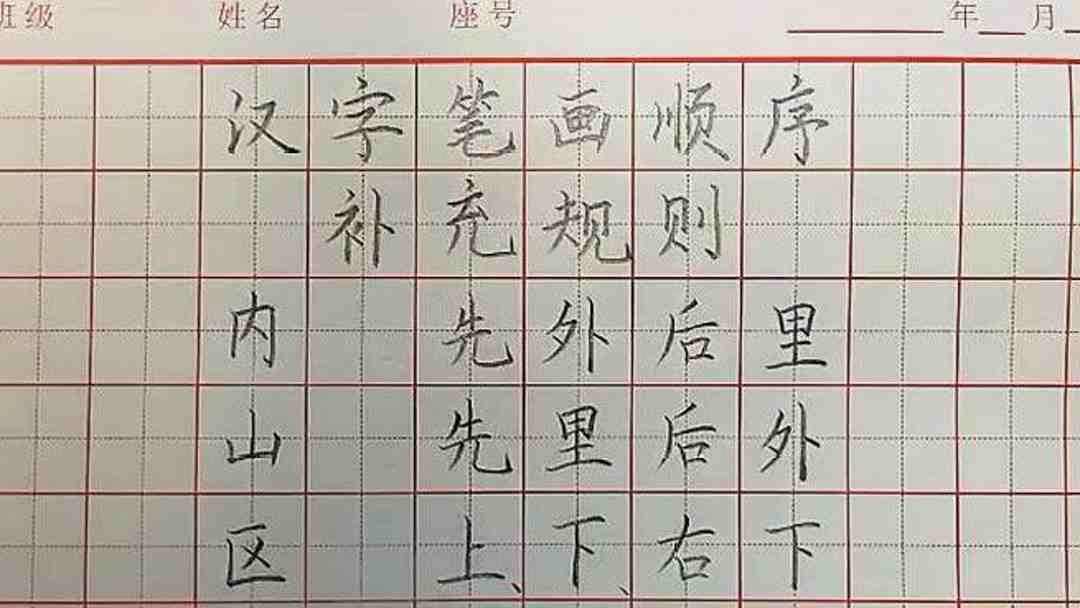 班级 姓名 座号 年 月
汉字笔画顺序
补充规则
内 先外后里
山 先里后外
区 上、下、右下